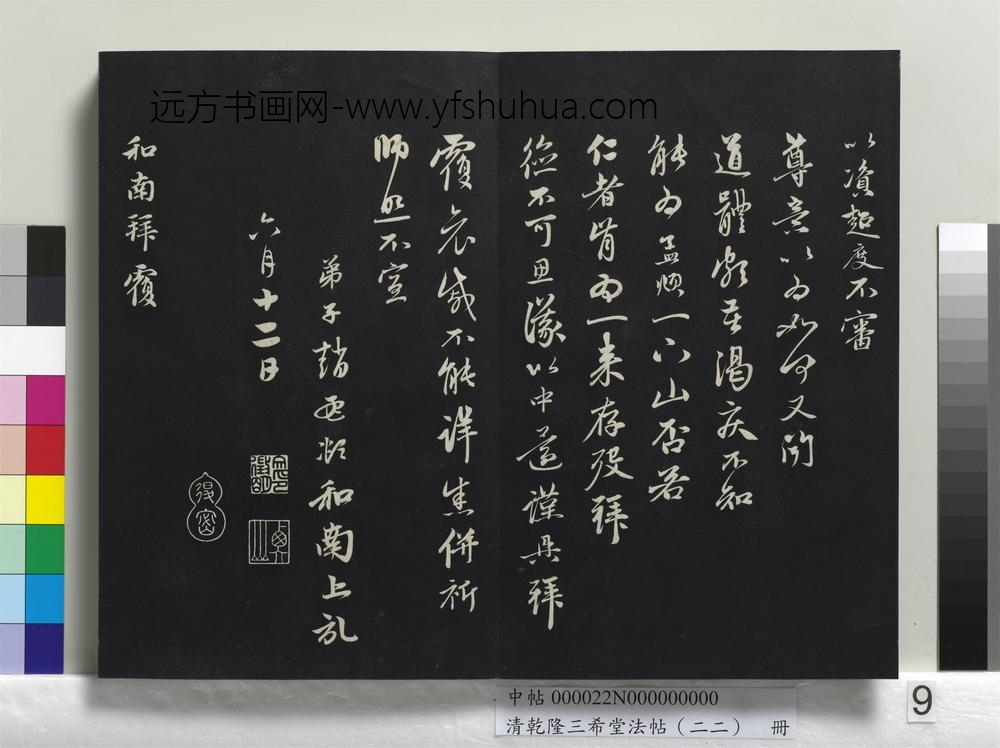 远方书画网-www.yfshuhua.com
以資超度不審
尊意以為如何又聞
道體頗苦渴疾不知
能為孟頫一下山否若
仁者肯為一来存歿拜
德不可思議以中還謹具拜
覆哀感不能詳悉併祈
師照不宣
弟子趙孟頫和南上
六月十二日
和南拜覆
中帖 000022N000000000
清乾隆三希堂法帖（二二） 冊
9